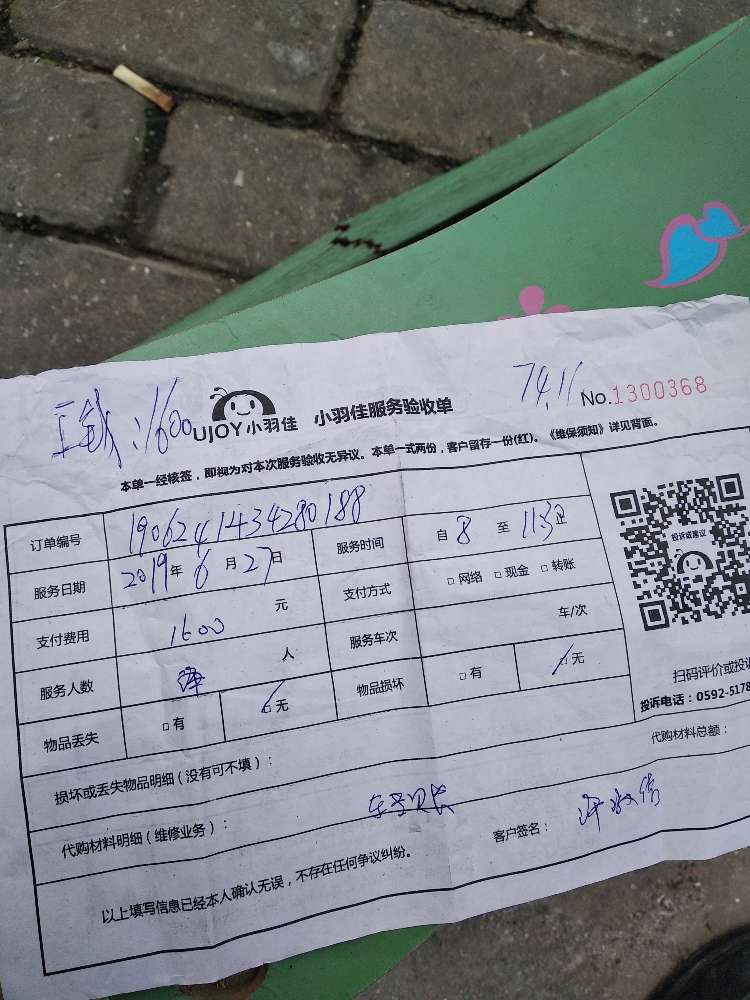 :1600
UJOY小羽佳 小羽佳服务验收单
No.1300368
本单一经核签，即视为对本次服务验收无异议。本单一式两份，客户留存一份(红)。《维保须知》详见背面。
订单编号 1906241434280188
服务日期 2019年6月27日 服务时间 自8至
支付费用 1600元 支付方式 □网络 □现金 □转账
服务人数 人 服务车次 车/次
物品丢失 □有 □无 物品损坏 □有 □无
投诉或建议
扫码评价或投诉
投诉电话：0592-5178
损坏或丢失物品明细（没有可不填）：
代购材料明细（维修业务）： 代购材料总额：
以上填写信息已经本人确认无误，不存在任何争议纠纷。 客户签名：